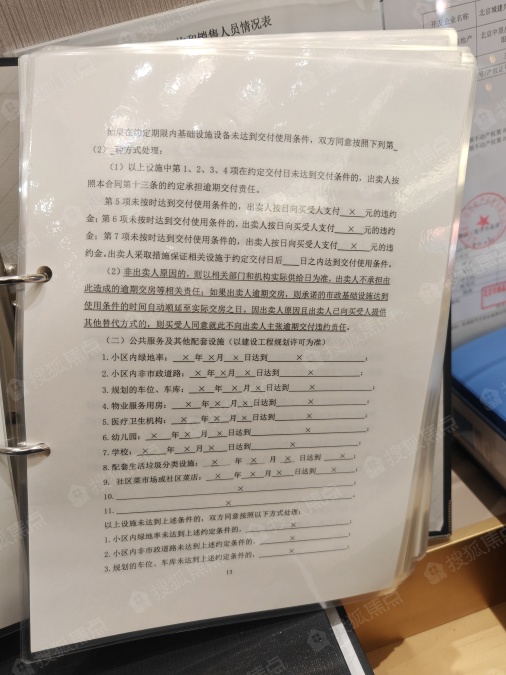 和销售人员情况表
开发企业名称
如果在约定期限内基础设施设备未达到交付使用条件，双方同意按照下列第
（2）种方式处理：
（1）以上设施中第 1、2、3、4 项在约定交付日未达到交付条件的，出卖人按
照本合同第十三条的约定承担逾期交付责任。
第 5 项未按时达到交付使用条件的，出卖人按日向买受人支付 × 元的违约
金；第 6 项未按时达到交付使用条件的，出卖人按日向买受人支付 × 元的违约
金；第 7 项未按时达到交付使用条件的，出卖人按日向买受人支付 × 元的违
约金。出卖人采取措施保证相关设施于约定交付日后____日之内达到交付使用条件。
（2）非出卖人原因的，则以相关部门和机构实际供给日为准，出卖人不承担由
此造成的逾期交房等相关责任；如果出卖人逾期交房，则承诺的市政基础设施达到
使用条件的时间自动顺延至实际交房之日，因出卖人原因且出卖人已向买受人提供
其他替代方式的，则买受人同意就此不向出卖人主张逾期交付违约责任。
（二）公共服务及其他配套设施（以建设工程规划许可为准）
1. 小区内绿地率： × 年 × 月 × 日达到 × ；
2. 小区内非市政道路： × 年 × 月 × 日达到 × ；
3. 规划的车位、车库： × 年 × 月 × 日达到 × ；
4. 物业服务用房： × 年 × 月 × 日达到 × ；
5. 医疗卫生机构： × 年 × 月 × 日达到 × ；
6. 幼儿园： × 年 × 月 × 日达到 × ；
7. 学校： × 年 × 月 × 日达到 × ；
8. 配套生活垃圾分类设施： × 年 × 月 × 日达到 × ；
9. 社区菜市场或社区菜店： × 年 × 月 × 日达到 × ；
10. × ；
11. × ；
以上设施未达到上述条件的，双方同意按照以下方式处理：
1. 小区内绿地率未达到上述约定条件的， × ；
2. 小区内非市政道路未达到上述约定条件的， × ；
3. 规划的车位、车库未达到上述约定条件的， × ；
13
搜狐焦点